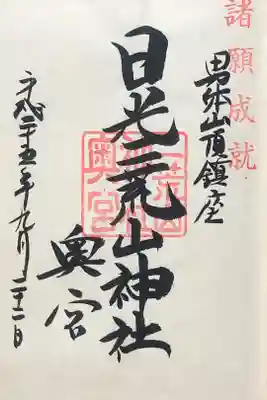 諸願成就
男体山頂鎮座
日光二荒山神社
奥宮
平成二十五年九月二十二日